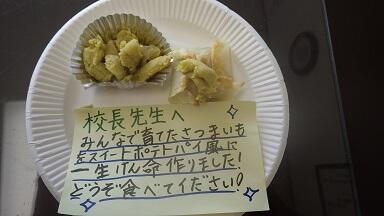 校長先生へ
みんなで育てたさつまいも
をスイートポテトパイ風に
一生けん命作りました!
どうぞ食べてください!